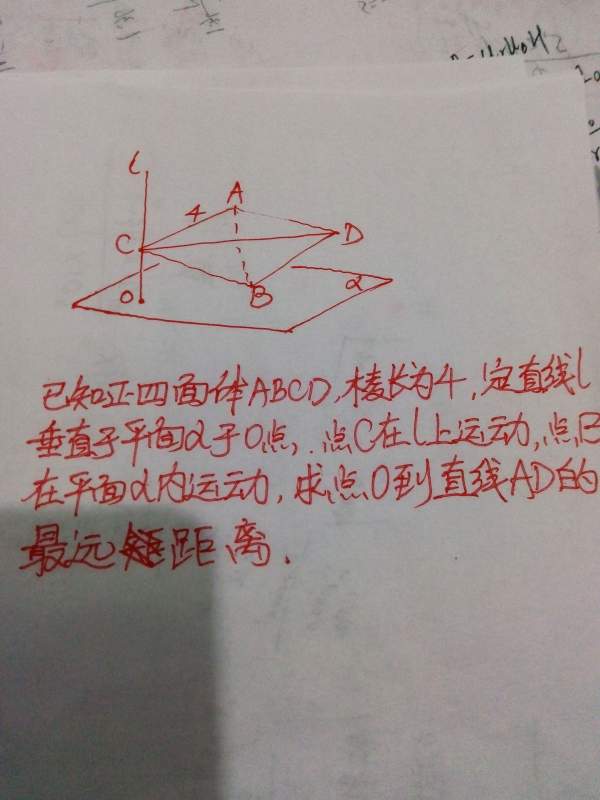 l
A
4
C
D
O
B
α
已知正四面体ABCD,棱长为4,定直线l
垂直于平面α于O点,.点C在l上运动,点B
在平面α内运动,求点O到直线AD的
最远距离.